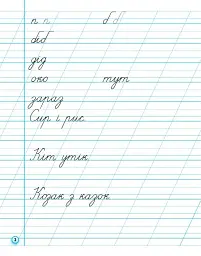 п п б б
біб
дід
око тут
зараз
Сир і рис.
Кіт утік.
Козак з казок.
3